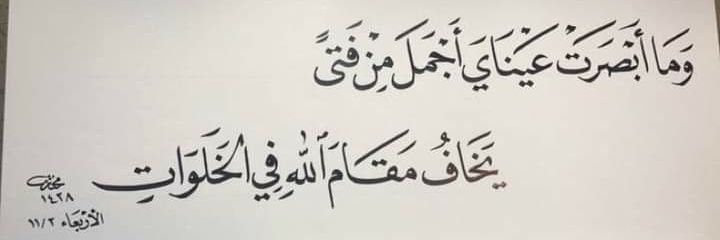 وَمَا أَبْصَرَتْ عَيْنَايَ أَجْمَلَ مِنْ فَتىً
يَخَافُ مَقَامَ ٱللهِ فِي الخَلَوَاتِ
١٤٣٨
الأربعاء ١١/٢